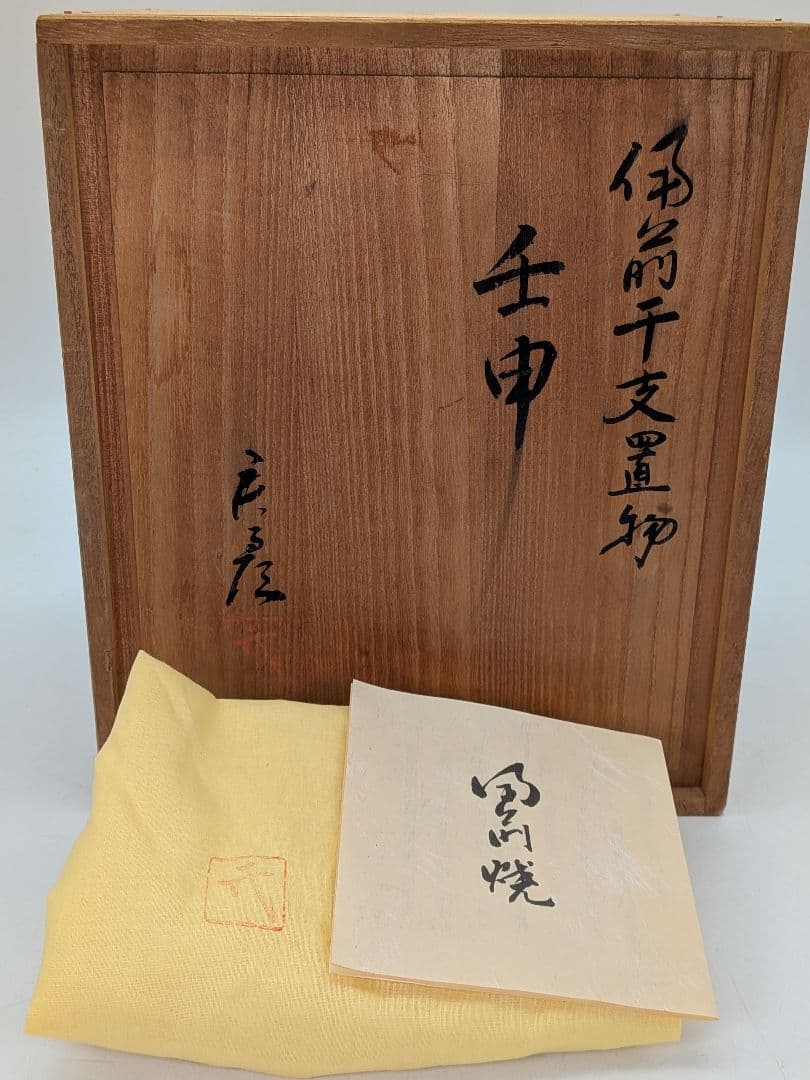 備前干支置物
壬申
備前焼